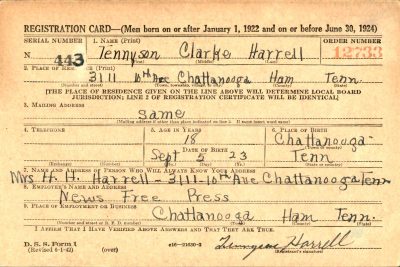 REGISTRATION CARD—(Men born on or after January 1, 1922 and on or before June 30, 1924)
SERIAL NUMBER 1. NAME (Print) ORDER NUMBER
N 443 Tennyson Clarke Harrell 12733
2. PLACE OF RESIDENCE (Print)
3111 10th Ave Chattanooga Ham Tenn.
(Number and street) (Town, township, village, or city) (County) (State)
(THE PLACE OF RESIDENCE GIVEN ON THE LINE ABOVE WILL DETERMINE LOCAL BOARD
JURISDICTION; LINE 2 OF REGISTRATION CERTIFICATE WILL BE IDENTICAL)
3. MAILING ADDRESS
same
(Mailing address if other than place indicated on line 2. If same insert word same)
4. TELEPHONE 5. AGE IN YEARS 6. PLACE OF BIRTH
18 Chattanooga
DATE OF BIRTH (Town or county)
Sept 5 23 Tenn
(Exchange) (Number) (Mo.) (Day) (Yr.) (State or country)
7. NAME AND ADDRESS OF PERSON WHO WILL ALWAYS KNOW YOUR ADDRESS
Mrs H. H. Harrell - 3111-10th Ave Chattanooga Tenn
8. EMPLOYER'S NAME AND ADDRESS
News Free Press
9. PLACE OF EMPLOYMENT OR BUSINESS
Chattanooga Ham Tenn.
(Number and street or R. F. D. number) (Town) (County) (State)
I AFFIRM THAT I HAVE VERIFIED ABOVE ANSWERS AND THAT THEY ARE TRUE.
D. S. S. Form 1 Harrell
(Revised 6-1-42) (over) (Registrant's signature)